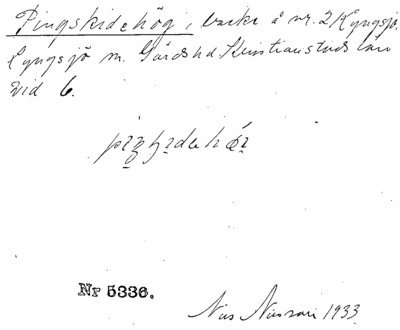 Pingskidehög, backe å nr. 2 Lyngsjö.
Lyngsjö sn. Gärds hd Kristianstads län
Vid 6.
Nr 5336.
Nils Nilsson 1933